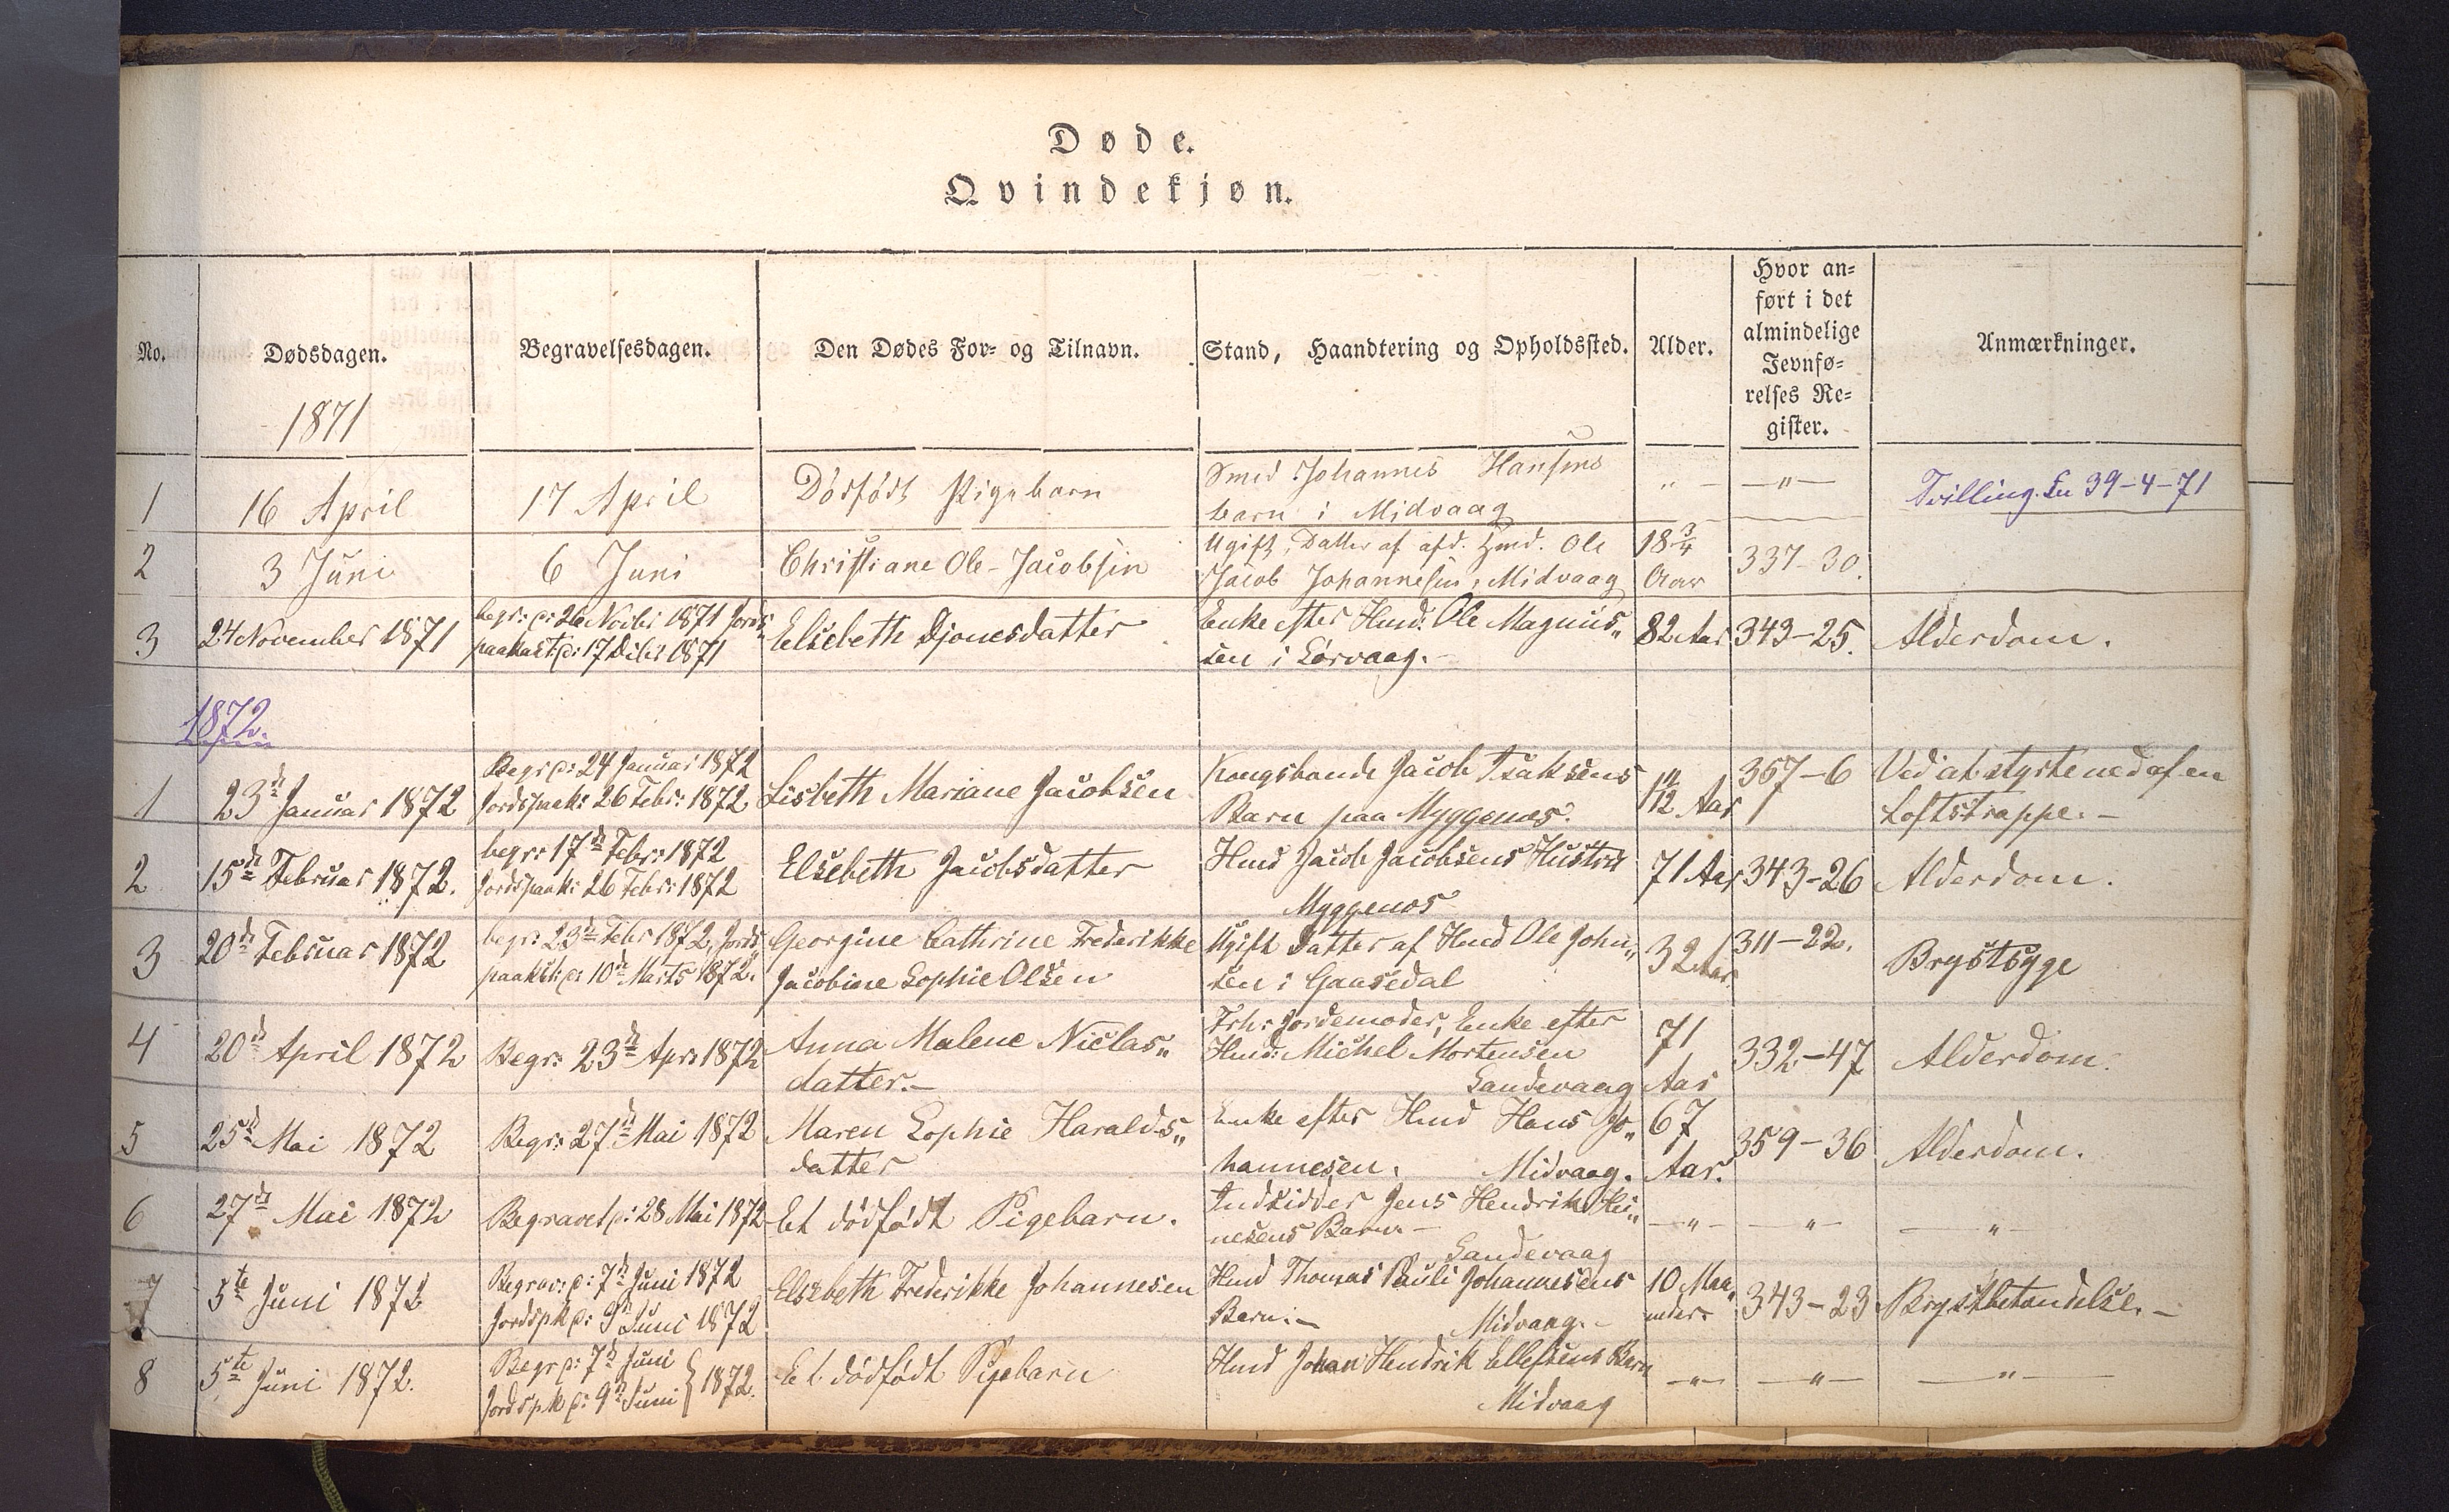 Døde.
Qvindekjøn.
No.
Dødsdagen.
Begravelsesdagen.
Den Dødes For- og Tilnavn.
Stand, Haandtering og Opholdssted.
Alder.
Hvor an-
ført i det
almindelige
Jevnfø-
relses Re-
gister.
Anmærkninger.
1871
1
16 April
17 April
Dødfødt Pigebarn
Smed Johannes Hansens
barn i Midvaag
" —
—"—
Tvilling. En 39-4-71
2
3 Juni
6 Juni
Christiane Ole-Jacobsen
Ugift, Datter af afd. Hmd. Ole
Jacob Johannesen, Midvaag
18 3/4
Aar
337-30.
3
24 November 1871
begr: p: 26 Novbr 1871 Jords-
paakast p: 17 Decbr 1871
Elsebeth Djonesdatter
Enke efter Hmd: Ole Magnus„
sen i Sørvaag.-
82 Aar
343-25.
Alderdom.
1872.
1
23d Januar 1872
Begr p: 24 Januar 1872
Jordspaak: 26 Febr: 1872
Lisbeth Mariane Jacobsen
Kongsbonde Jacob Isaksens
Barn paa Myggenæs.
11/12 Aar
357-6
Ved at styrte ned af en
Loftstrappe.-
2
15d Februar 1872.
begr: 17d Febr: 1872
Jordspaak: 26 Febr: 1872
Elsebeth Jacobsdatter
Hmd Jacob Jacobsens Hustru
Myggenæs
71 Aar
343-26
Alderdom.
3
20d Februar 1872
begr: 23d Febr 1872, Jords
paakst: p: 10d Marts 1872.
Georgine Cathrine Frederikke
Jacobine Sophie Olsen
Ugift Datter af Hmd Ole John„
sen i Gaasedal
32 Aar
311-22.
Brystsyge
4
20d April 1872
Begr: 23d Apr: 1872
Anna Malene Niclas„
datter.-
Frh: Jordemoder, Enke efter
Hmd: Michel Mortensen
Sandevaag
71
Aar
332-47
Alderdom.
5
25d Mai 1872
Begr: 27d Mai 1872
Maren Sophie Haralds„
datter
Enke efter Hmd Hans Jo„
hannesen. Midvaag.
67
Aar.
359-36
Alderdom.
6
27d Mai 1872
Begravet p: 28 Mai 1872
Et dødfødt Pigebarn.
Indsidder Jens Hendrik Hei„
nesens Barn.-
Sandevaag
—"—
—"—
—"—
7
5te Juni 1872
Begrav: p: 7d Juni 1872
Jordspk p: 9d Juni 1872
Elsebeth Frederikke Johannesen
Hmd Thomas Pauli Johannesens
Barn:- Midvaag.-
10 Maa„
neder
343-23
Brystbetændelse.-
8
5te Juni 1872.
Begr p: 7d Juni
Jordspk p: 9d Juni } 1872.
Et dødfødt Pigebarn
Hmd Johan Hendrik Ellefsens Barn
Midvaag
—"—
—"—
—"—